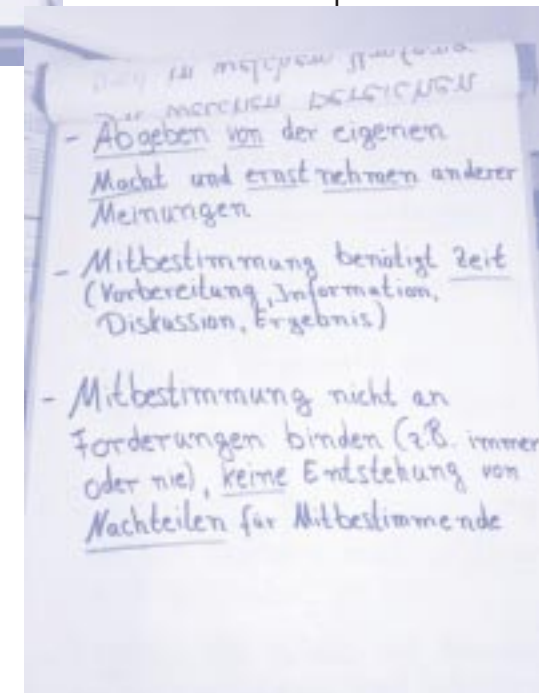 in welchen
in welchen Bereichen
- Abgeben von der eigenen
Macht und ernst nehmen anderer
Meinungen
- Mitbestimmung benötigt Zeit
(Vorbereitung, Information,
Diskussion, Ergebnis)
- Mitbestimmung nicht an
Forderungen binden (z.B. immer
oder nie), keine Entstehung von
Nachteilen für Mitbestimmende